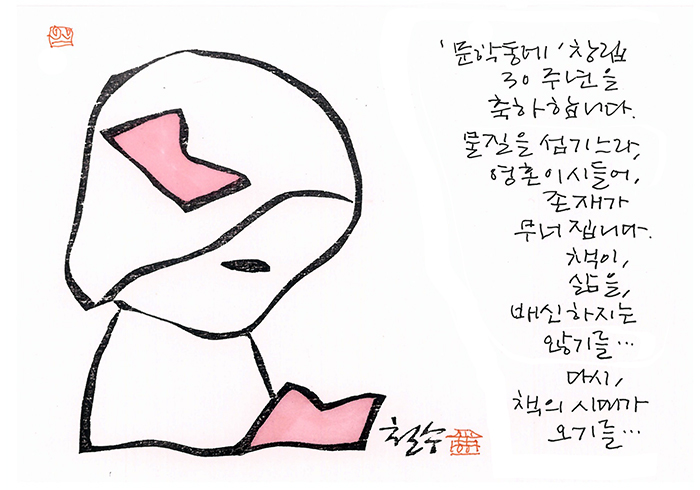 '문학동네' 창립
30주년을
축하합니다.
물질을 섬기느라,
영혼이 시들어,
존재가
무너집니다.
책이,
삶을,
배신하지는
않기를...
다시,
책의 시대가
오기를...
철수